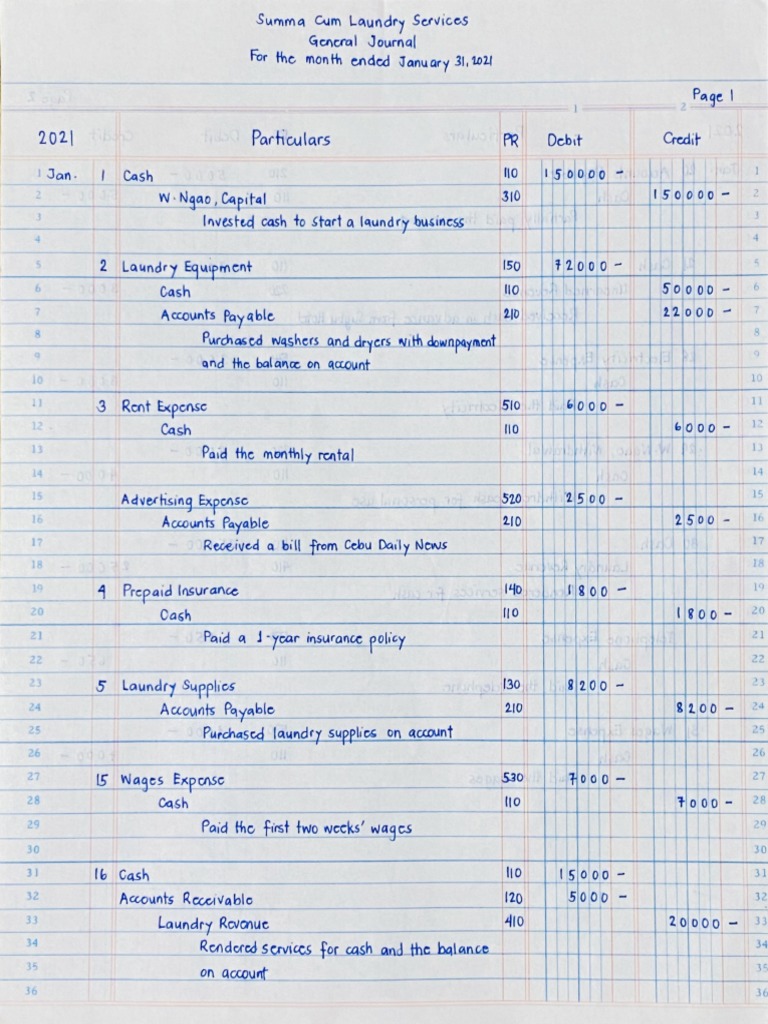 Summa Cum Laundry Services
General Journal
For the month ended January 31, 2021
Page 1
1 2
2021 Particulars PR Debit Credit
1 Jan. 1 Cash 110 150000 - 1
2 W. Ngao, Capital 310 150000 - 2
3 Invested cash to start a laundry business 3
4 4
5 2 Laundry Equipment 150 72000 - 5
6 Cash 110 50000 - 6
7 Accounts Payable 210 22000 - 7
8 Purchased washers and dryers with downpayment 8
9 and the balance on account 9
10 10
11 3 Rent Expense 510 6000 - 11
12 Cash 110 6000 - 12
13 Paid the monthly rental 13
14 14
15 Advertising Expense 520 2500 - 15
16 Accounts Payable 210 2500 - 16
17 Received a bill from Cebu Daily News 17
18 18
19 4 Prepaid Insurance 140 1800 - 19
20 Cash 110 1800 - 20
21 Paid a 1-year insurance policy 21
22 22
23 5 Laundry Supplies 130 8200 - 23
24 Accounts Payable 210 8200 - 24
25 Purchased laundry supplies on account 25
26 26
27 15 Wages Expense 530 7000 - 27
28 Cash 110 7000 - 28
29 Paid the first two weeks' wages 29
30 30
31 16 Cash 110 15000 - 31
32 Accounts Receivable 120 5000 - 32
33 Laundry Revenue 410 20000 - 33
34 Rendered services for cash and the balance 34
35 on account 35
36 36